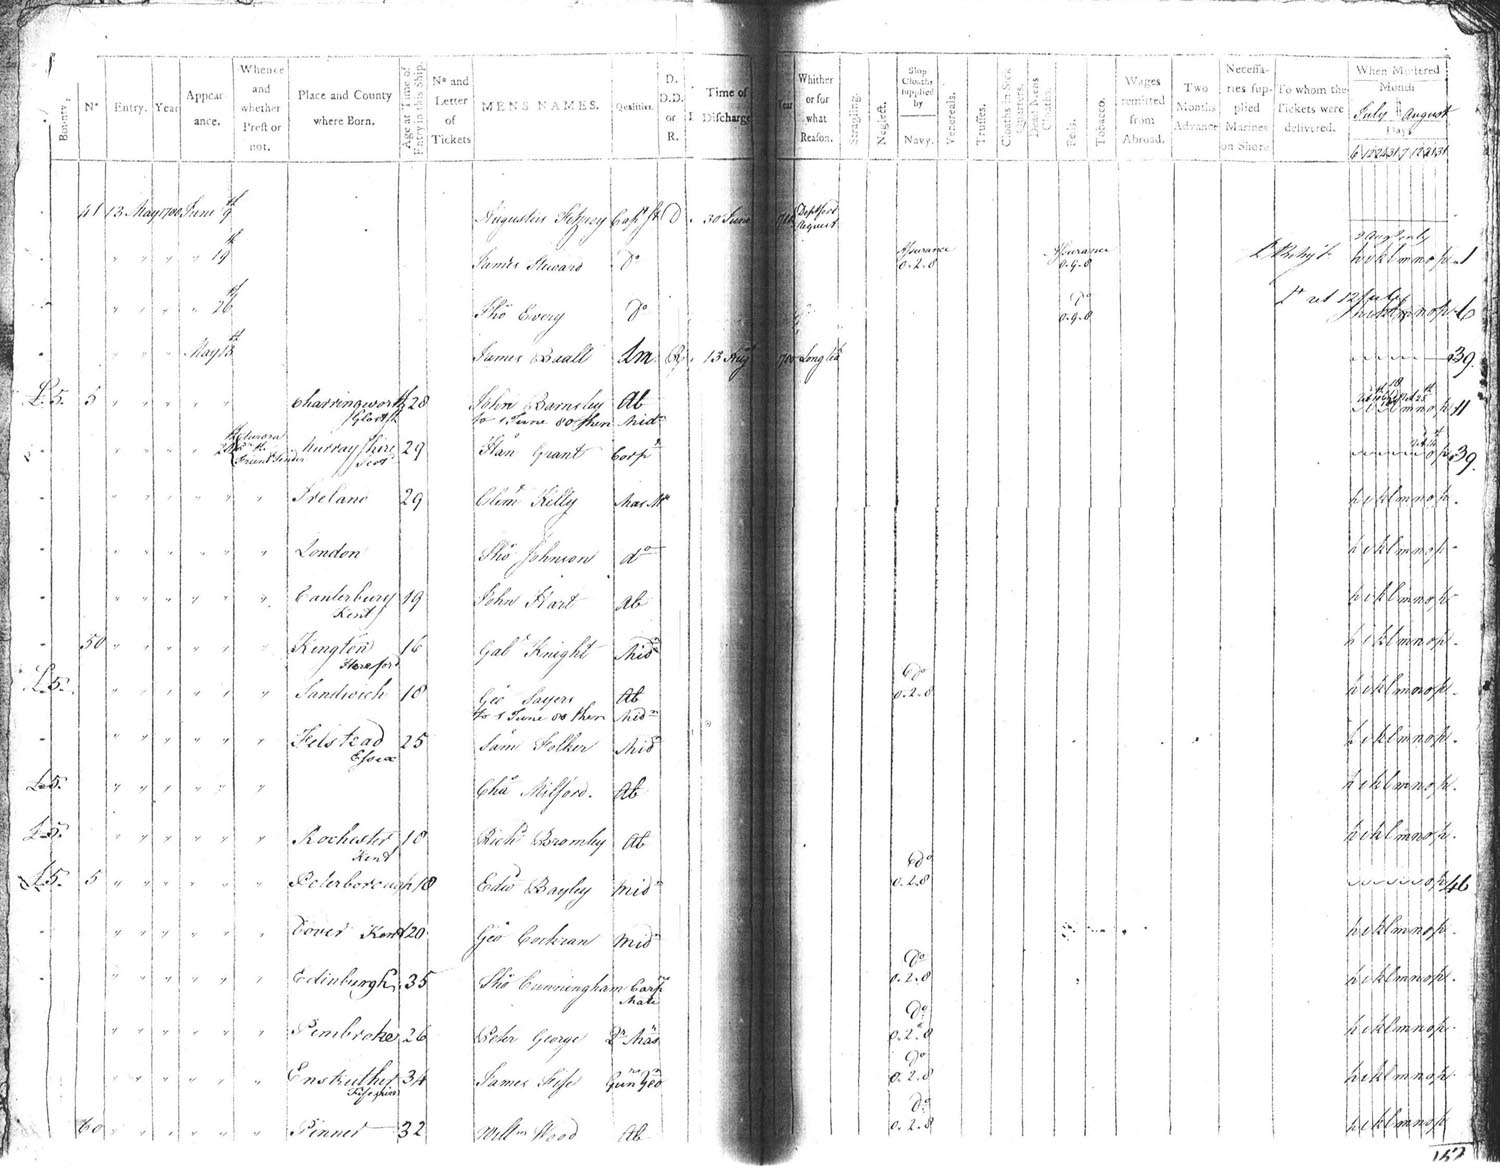 Bounty. Nº Entry. Year Appearance. Whence and whether Prest or not. Place and County where Born. Age at Time of Entry in this Ship. Nº and Letter of Tickets MENS NAMES. Qualities. D. D.D. or R. Time of Discharge Year Whither or for what Reason. Stragling. Neglect. Slop Cloaths supplied by Navy. Venereals. Trusses. Cloaths in Sick Quarters. Dead Mens Cloaths. Beds. Tobacco. Wages remitted from Abroad. Two Months Advance Necessaries supplied Marines on Shore To whom the Tickets were delivered. When Mustered Month July August Days
41 13 May 1780 June 9th Augustus Fitzroy Capts St D 30 June Deptford Request
" " " 19th James Steward Do Assurance 0.2.8 Assurance 0.9.8 h i k l m n o p 1
" " " 26th Tho Every Do Do 0.9.8 12 July 6
" " " May 13th James Beall Lm R 13 Augt 1780 Long 39
£5. 5 " " " " Charringworth Glost 28 John Barnsley Ab
to 1 June 80 then Mid m n o p 11
" " " " Murrayshire Scot 29 Han Grant Corpl o p 39
" " " " " " Ireland 29 Clemt Kelly Mas Mte h i k l m n o p
" " " " " " London Tho Johnson do h i k l m n o p
" " " " " " Canterbury Kent 19 John Hart Ab h i k l m n o p
50 " " " " " " Kington Hereford 16 Gabl Knight Mid h i k l m n o p
£5. " " " " " " Sandwich 18 Geo Sayers Ab Do 0.2.8 h i k l m n o p
to 1 June 80 then Midn
" " " " " " Felstead Essex 25 Sam Folker Mid h i k l m n o p
£5. " " " " " " Cha Milford. Ab h i k l m n o p
£5. " " " " " " Rochester Kent 18 Richd Bromley Ab h i k l m n o p
£5. 5 " " " " " " Peterborough 18 Edwd Bayley Midn Do 0.2.8 o p 46
" " " " " " Dover Kent 20 Geo Cochran Midn h i k l m n o p
" " " " " " Edinburgh 35 Tho Cunningham Carprs Mate Do 0.2.8 h i k l m n o p
" " " " " " Pembroke 26 Peter George Qr Mas Do 0.2.8 h i k l m n o p
" " " " " " Enstruther Fifeshire 34 James Fife Do 0.2.8 h i k l m n o p
60 " " " " " " Pinner 32 Willm Wood Ab Do 0.2.8 h i k l m n o p